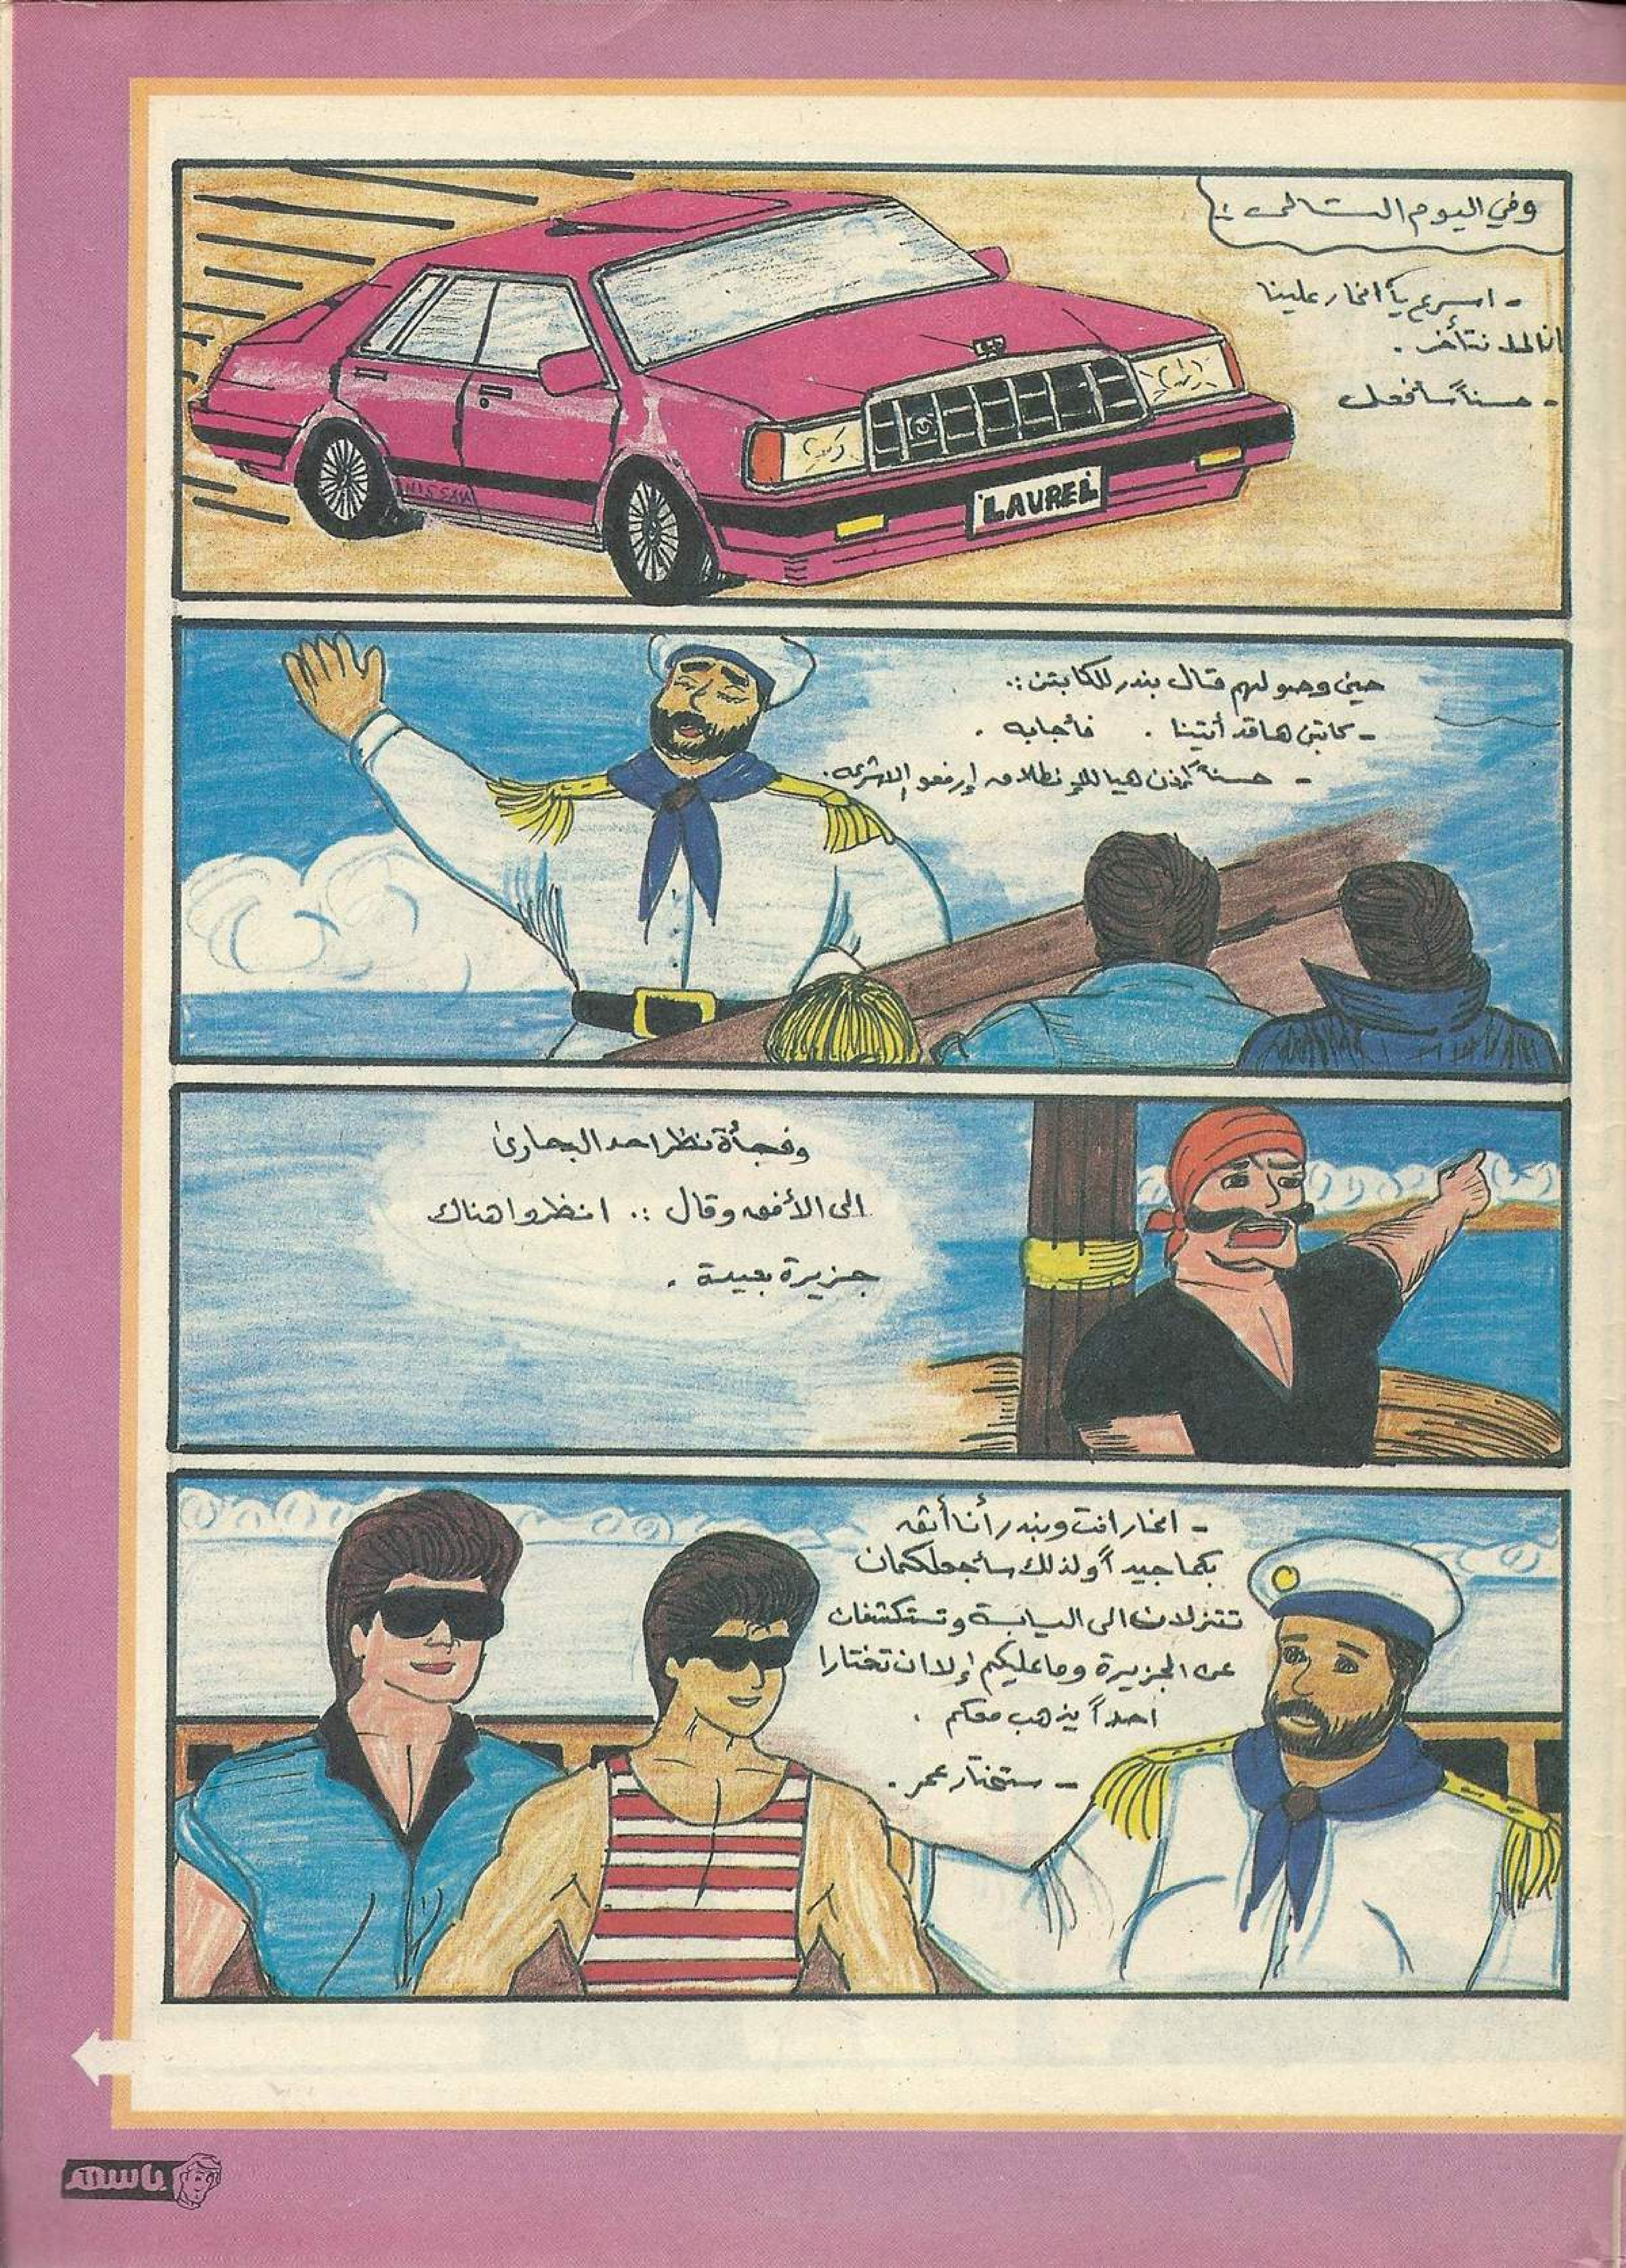 وفي اليوم التالي :
- اسرع يا انمار علينا
ان لا نتأخر .
- حسناً سأفعل
NISSAN
LAUREL
حين وصولهم قال بندر للكابتن :.
- كابتن ها قد أتينا . فأجابه .
- حسناً إذن هيا للإنطلاق إرفعو الاشرعه .
وفجأة نظر احد البحارين
الى الأفق وقال :. انظروا هناك
جزيرة بعيدة .
- انمار انت وبندر أنا أثق
بكما جيداً ولذلك سأجعلكمان
تنزلان الى اليابسة وتستكشفان
عن الجزيرة وما عليكم إلا ان تختارا
احداً يذهب معكم .
- سنختار عمر .
باسم